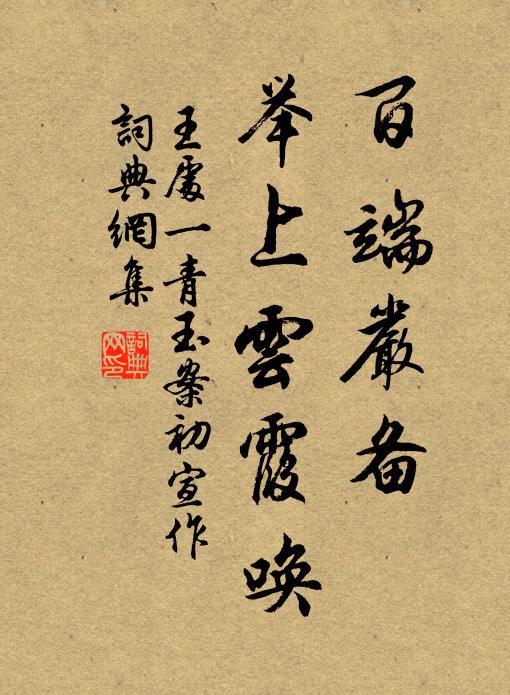 百端嚴备
举上雲霞唤
王處一青玉案初宣作
詞典網集
詞典网印